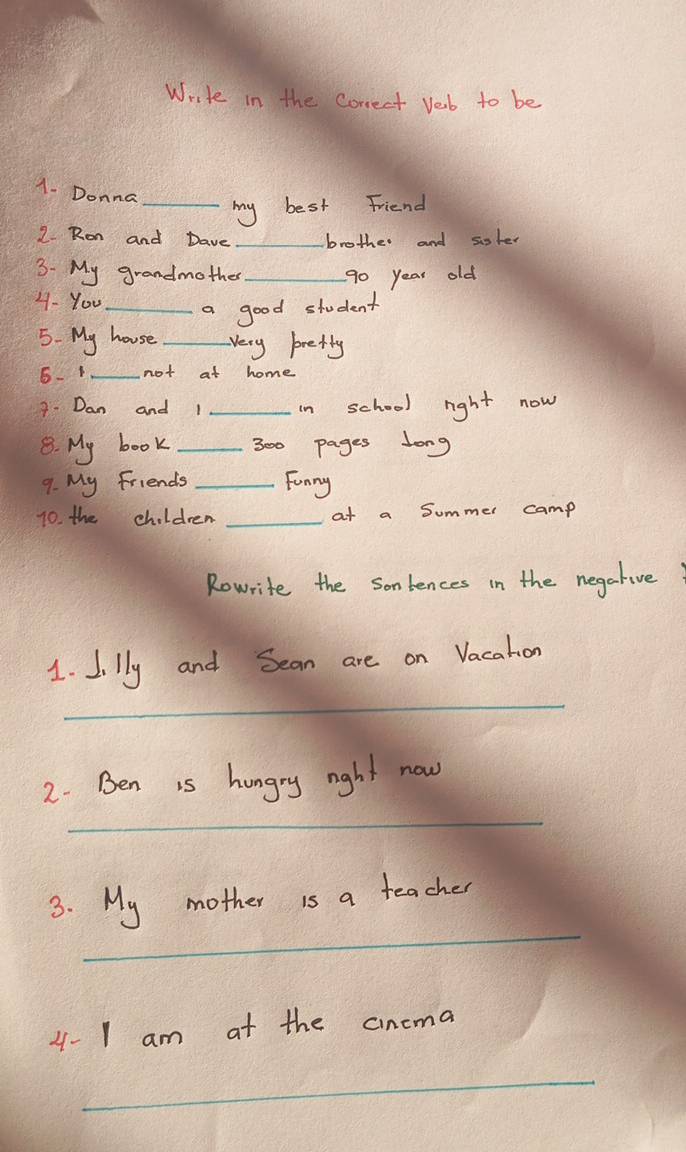 Write in the correct Verb to be
1- Donna ______ my best Friend
2- Ron and Dave ______ brother and sister
3- My grandmother ______ 90 year old
4- You ______ a good student
5- My house ______ Very pretty
6- I ______ not at home
7- Dan and I ______ in school right now
8. My book ______ 300 pages long
9. My Friends ______ Funny
10. the children ______ at a Summer camp
Rewrite the Sentences in the negative
1. Jilly and Sean are on Vacation
2- Ben is hungry right now
3. My mother is a teacher
4- I am at the cinema